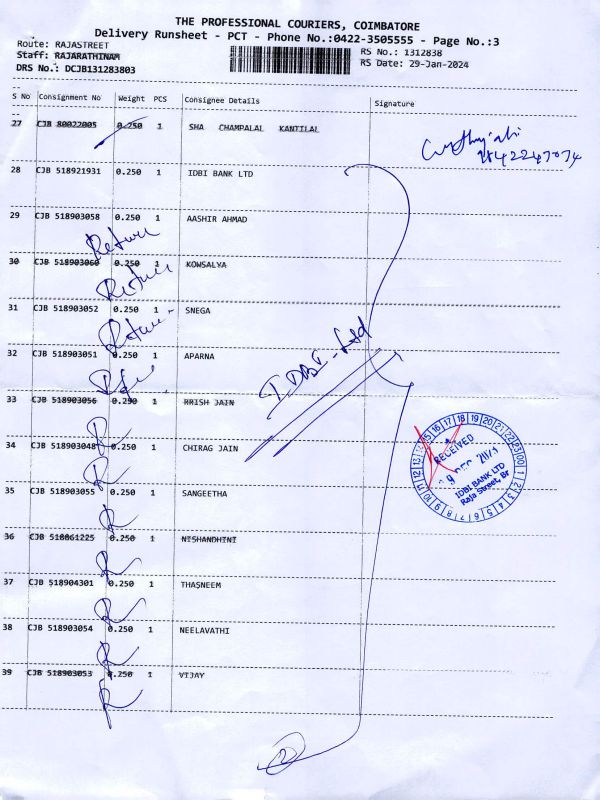 THE PROFESSIONAL COURIERS, COIMBATORE
Delivery Runsheet - PCT - Phone No.:0422-3505555 - Page No.:3
Route: RAJASTREET
RS No.: 1312838
Staff: RAJARATHINAM
RS Date: 29-Jan-2024
DRS No.: DCJB131283803
S No Consignment No Weight PCS Consignee Details Signature
27 CJB 80022005 0.250 1 SHA CHAMPALAL KANTILAL
28 CJB 518921931 0.250 1 IDBI BANK LTD
29 CJB 518903058 0.250 1 AASHIR AHMAD
Return
30 CJB 518903060 0.250 1 KOWSALYA
Return
31 CJB 518903052 0.250 1 SNEGA
Return
IDBI - Ltd
32 CJB 518903051 0.250 1 APARNA
33 CJB 518903056 0.250 1 RRISH JAIN
R
34 CJB 518903048 0.250 1 CHIRAG JAIN
R
35 CJB 518903055 0.250 1 SANGEETHA
R
36 CJB 518061225 0.250 1 NISHANDHINI
R
37 CJB 518904301 0.250 1 THASNEEM
R
38 CJB 518903054 0.250 1 NEELAVATHI
R
39 CJB 518903053 0.250 1 VIJAY
R
RECEIVED
DEC
IDBI BANK LTD
Raja Street, Br